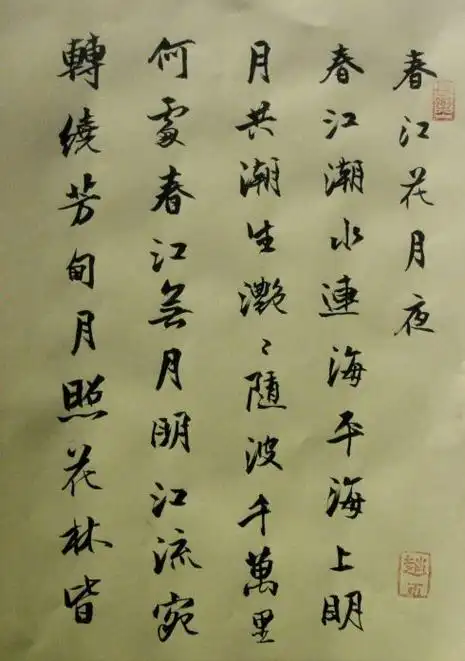 春江花月夜
春江潮水連海平海上明
月共潮生灔〻隨波千萬里
何處春江無月明江流宛
轉繞芳甸月照花林皆